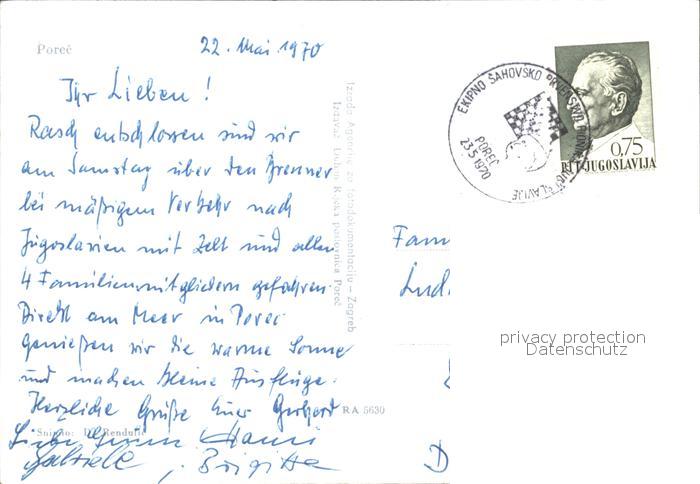 Poreč
22. Mai 1970
Ihr Lieben!
Rasch entschlossen sind wir
am Samstag über den Brenner
bei mäßigem Verkehr nach
Jugoslavien mit Zelt und allen
4 Familienmitgliedern gefahren.
Direkt am Meer in Porec
genießen wir die warme Sonne
und machen kleine Ausflüge.
Herzliche Grüße Euer Gerhard
Liebe Grüße Hanni
Gabriele, Brigitte
Snimio: Rendulić
Izdaje: Agencija za fotodokumentaciju – Zagreb
poslovnica Poreč
RA 5630
EKIPNO ŠAHOVSKO PRVENSTVO PIONIRA JUGOSLAVIJE
POREČ
23.5.1970
0,75
PTT JUGOSLAVIJA
Fam
Lud
D
privacy protection
Datenschutz